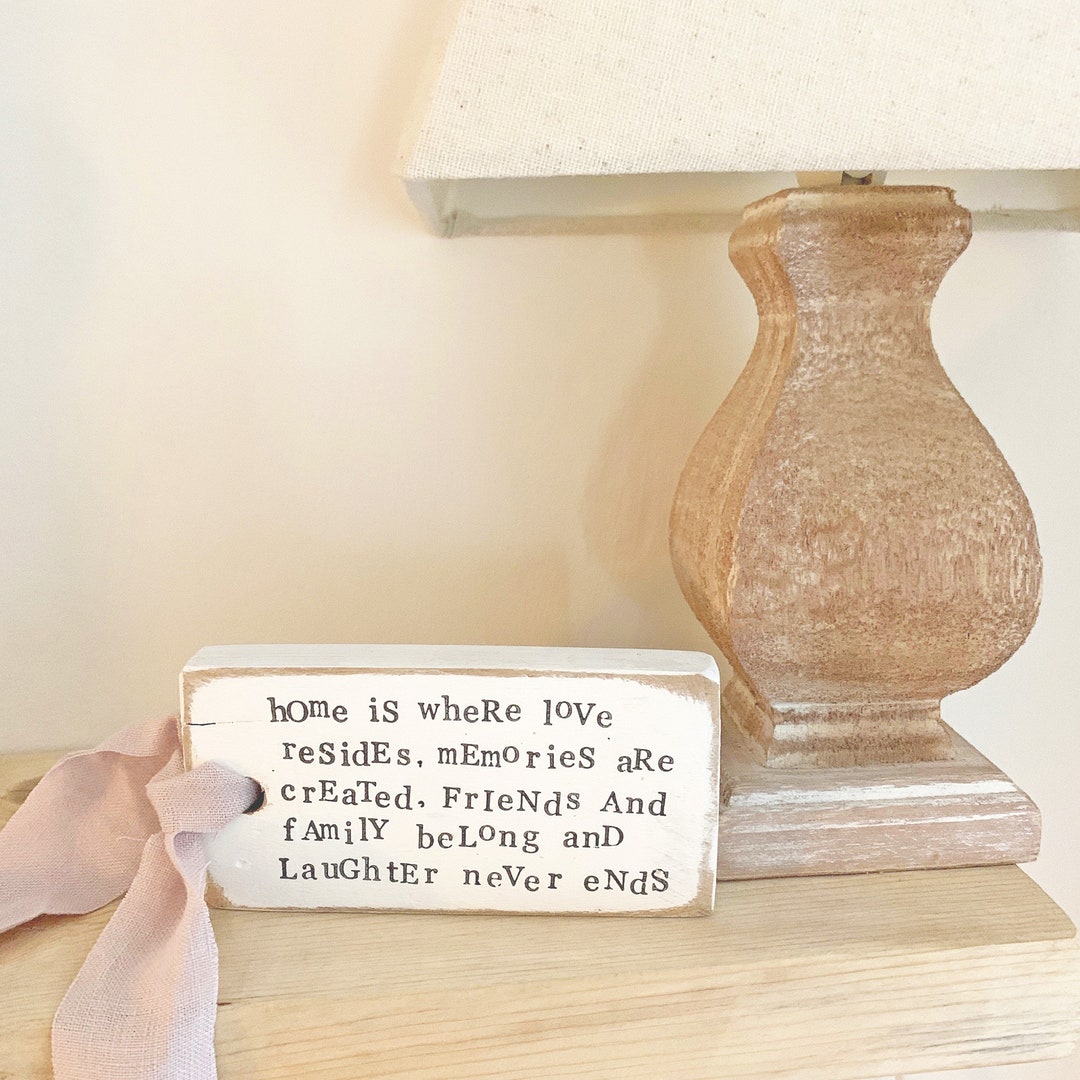 hOme iS wheRe lOVe
reSidEs, mEmOrieS aRe
crEaTed, FrIeNds And
fAmilY beLOng anD
LauGhtEr neVer eNdS